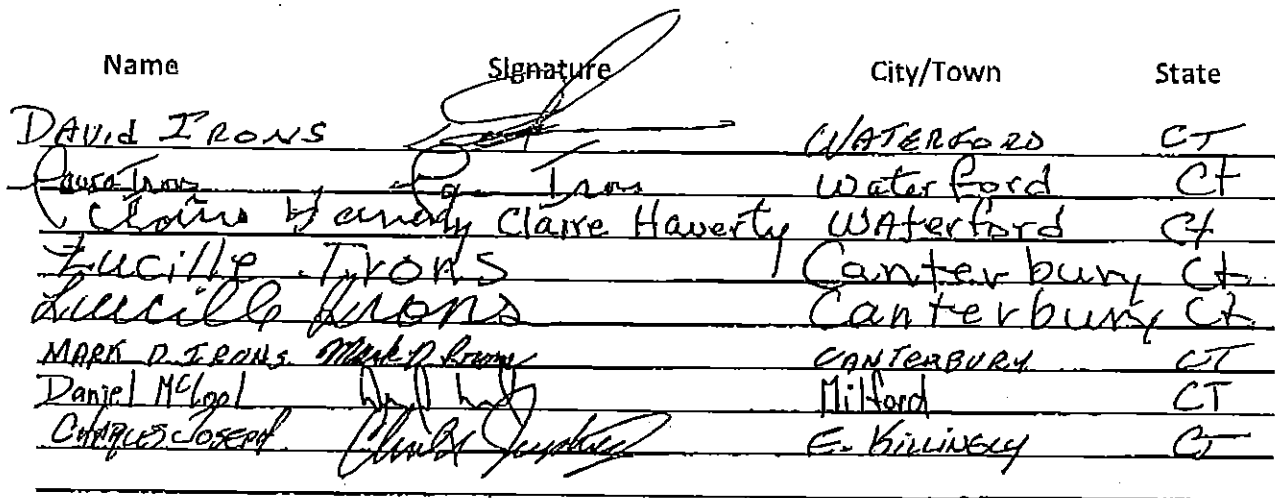 Name Signature City/Town State
DAVid IRONS WATERFORD CT
Laura Irons Irons Waterford Ct
Claire Haverty Claire Haverty WAterford Ct
Lucille Irons Canterbury Ct
Lucille Irons Canterbury Ct
MARK D. IRONS Mark D. Irons CANTERBURY CT
Daniel McLool Milford CT
CHARLES JOSEPH E. KILLINGLY CT